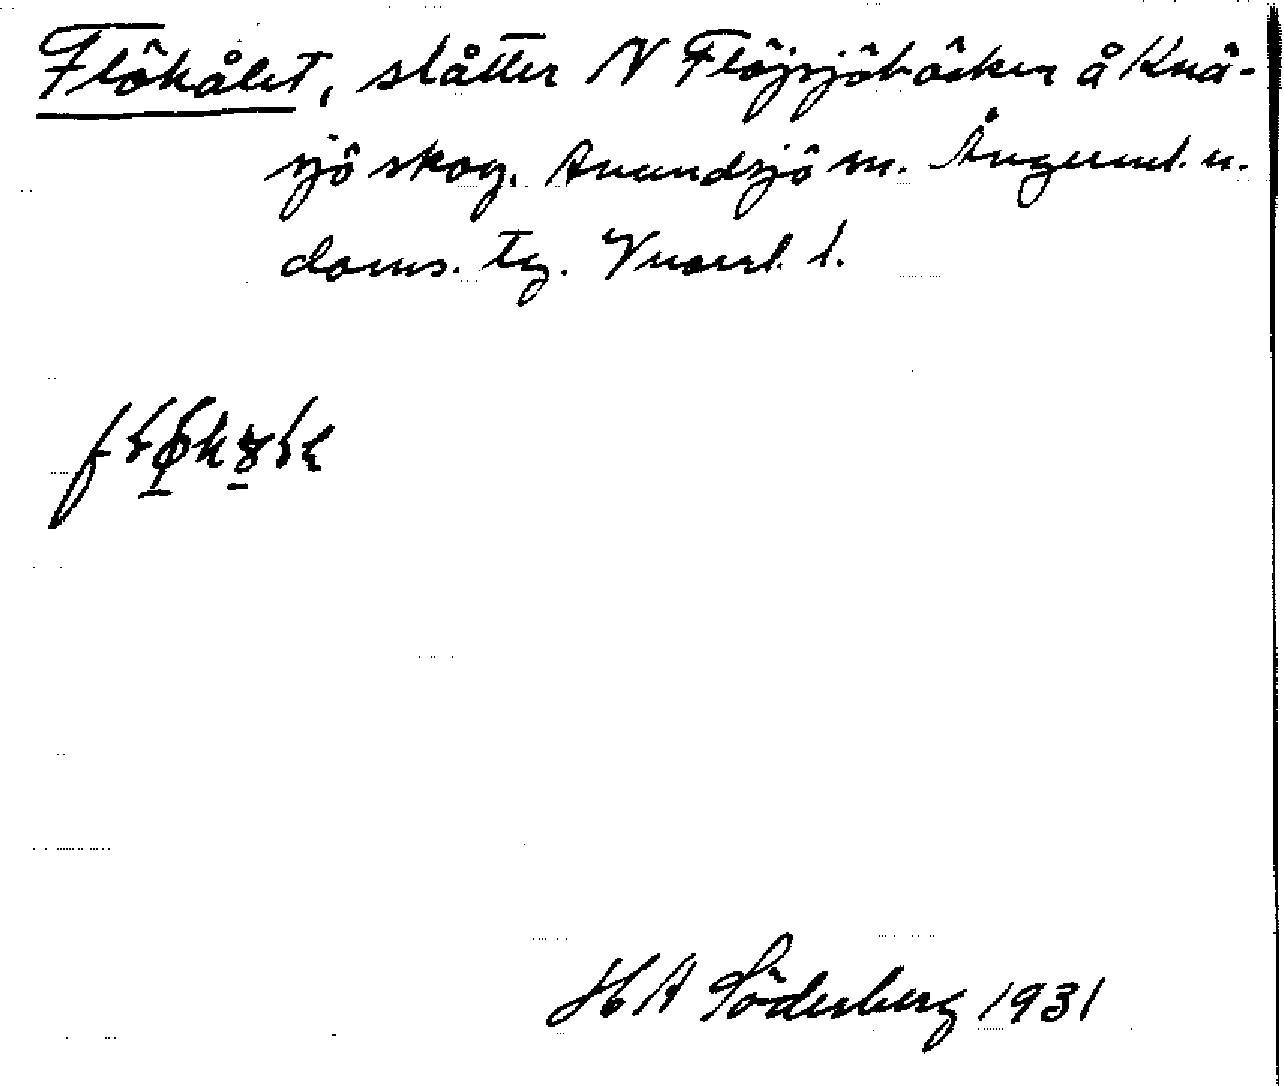 Flökålet, slåtter N Flöjsjöbäcken å Knä-
sjö skog. Anundsjö sn. Ångerml. n.
doms. tg. Vnorrl. l.
H A Söderberg 1931